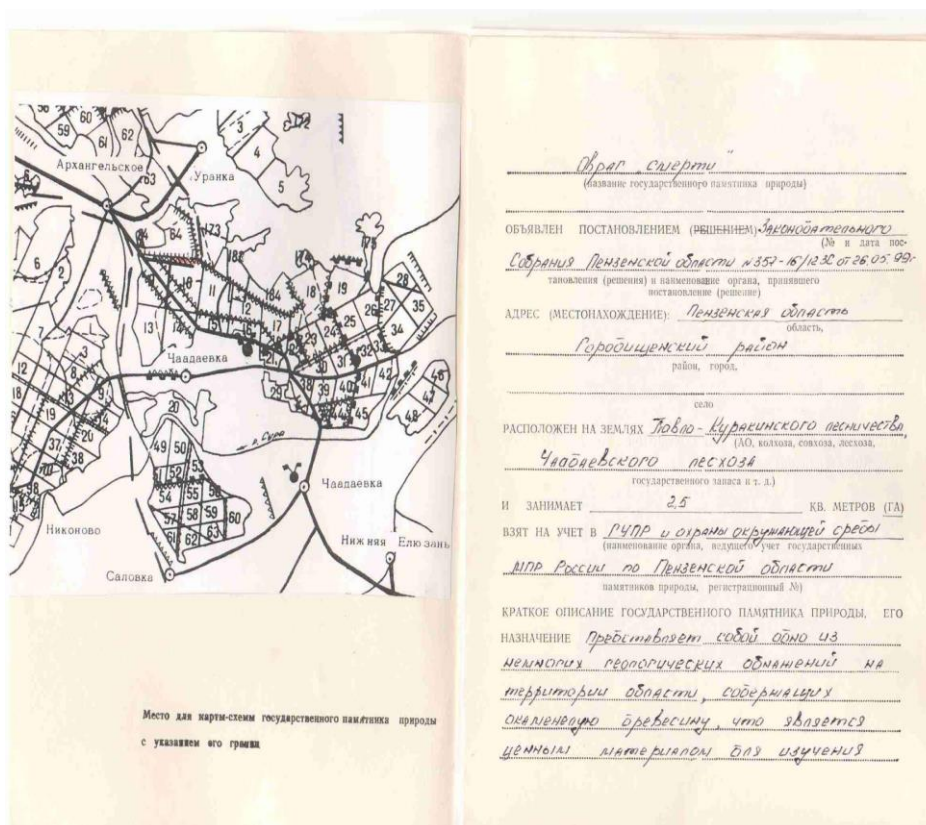 58
60
59
61
62
3
172
4
5
Архангельское
63
Уранка
84
64
173
182
174
175
6
2
10
11
12
184
18
19
28
26
27
35
13
14
15
16
17
23
24
25
34
7
3
8
12
Чаадаевка
21
30
31
32
33
42
18
19
13
9
14
29
38
39
40
41
46
47
37
20
38
20
44
45
48
49
50
р. Сура
51
52
53
54
55
56
57
58
59
60
61
62
63
Чаадаевка
Никоново
Нижняя Елюзань
Саловка
Место для карты-схемы государственного памятника природы
с указанием его границ
"Овраг смерти"
(название государственного памятника природы)
ОБЪЯВЛЕН ПОСТАНОВЛЕНИЕМ (РЕШЕНИЕМ) Законодательного
(№ и дата пос-
Собрания Пензенской области №357-16/12ЗС от 26.05.99г.
тановления (решения) и наименование органа, принявшего
постановление (решение)
АДРЕС (МЕСТОНАХОЖДЕНИЕ): Пензенская область
область,
Городищенский район
район, город,
село
РАСПОЛОЖЕН НА ЗЕМЛЯХ Павло-Куракинского лесничества,
(АО, колхоза, совхоза, лесхоза,
Чаадаевского лесхоза
государственного запаса и т. д.)
И ЗАНИМАЕТ 2,5 КВ. МЕТРОВ (ГА)
ВЗЯТ НА УЧЕТ В ГУПР и охраны окружающей среды
(наименование органа, ведущего учет государственных
МПР России по Пензенской области
памятников природы, регистрационный №)
КРАТКОЕ ОПИСАНИЕ ГОСУДАРСТВЕННОГО ПАМЯТНИКА ПРИРОДЫ, ЕГО
НАЗНАЧЕНИЕ Представляет собой одно из
немногих геологических обнажений на
территории области, содержащих
окаменелую древесину, что является
ценным материалом для изучения